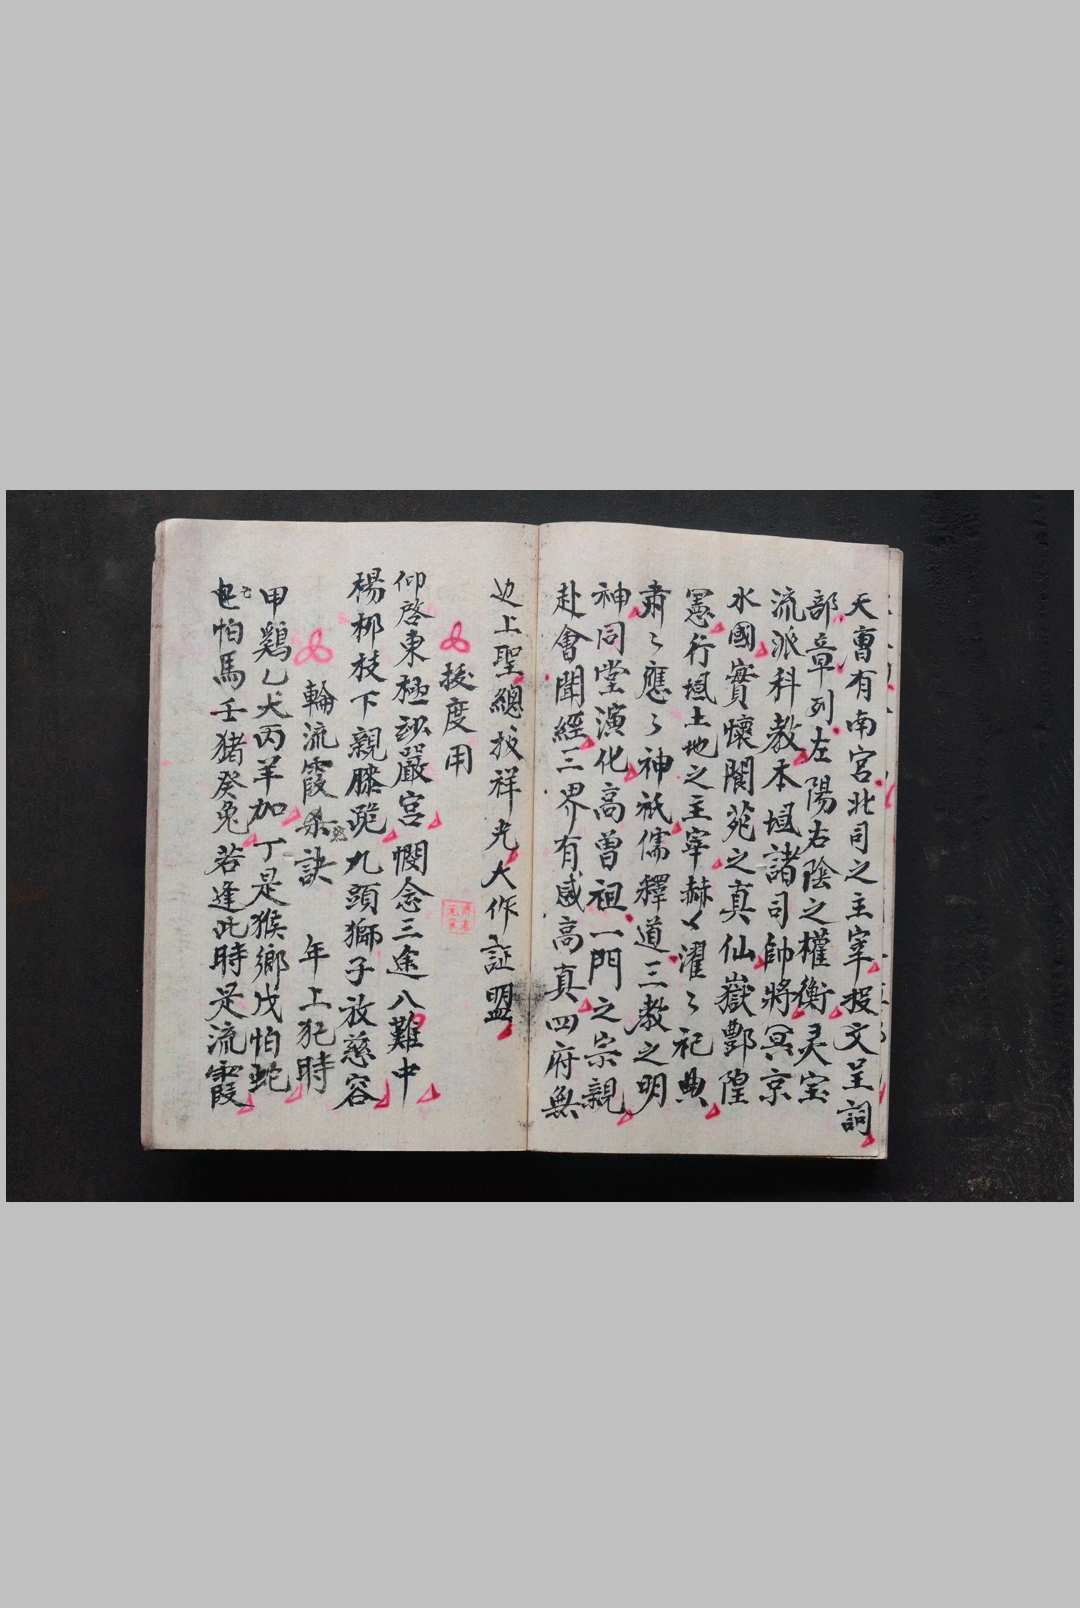 天曹有南宮北司之主宰投文呈詞
部章列左陽右陰之權衡灵宝
流派科教本域諸司帥將冥京
水國實懷閬苑之真仙嶽酆隍
憲行域土地之主宰赫々濯〻祀典
肅〻應〻神祇儒釋道三教之明
神同堂演化高曾祖一門之宗親
赴會聞經三界有感高真四府無
边上聖總放祥光大作証盟
援度用
仰啓東極妙嚴宮憫念三途八難中
楊柳枝下親膝跪九頭獅子放慈容
輪流霞訣 年上犯時
甲鷄乙犬丙羊加丁是猴鄉戊怕蛇
己怕馬壬猪癸兔若逢此時是流霞